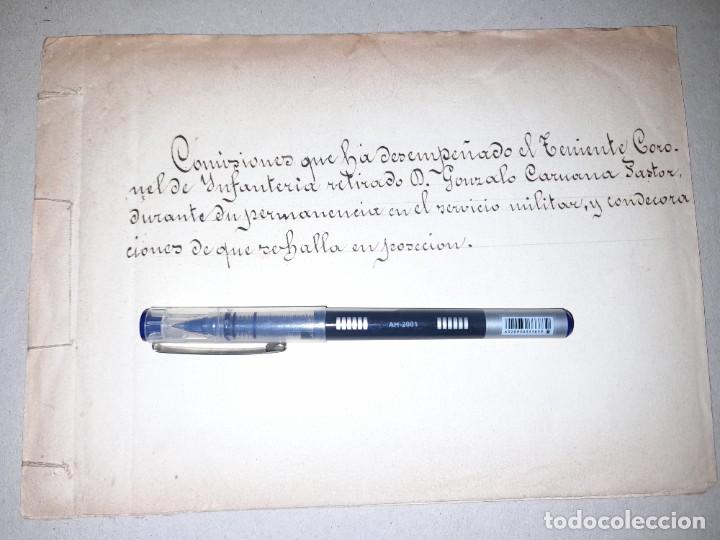 Comisiones que ha desempeñado el Teniente Coro-
nel de Ynfanteria retirado D. Gonzalo Caruana Pastor,
durante su permanencia en el servicio militar, y condecora
ciones de que se halla en posecion.
AH-2001
todocoleccion